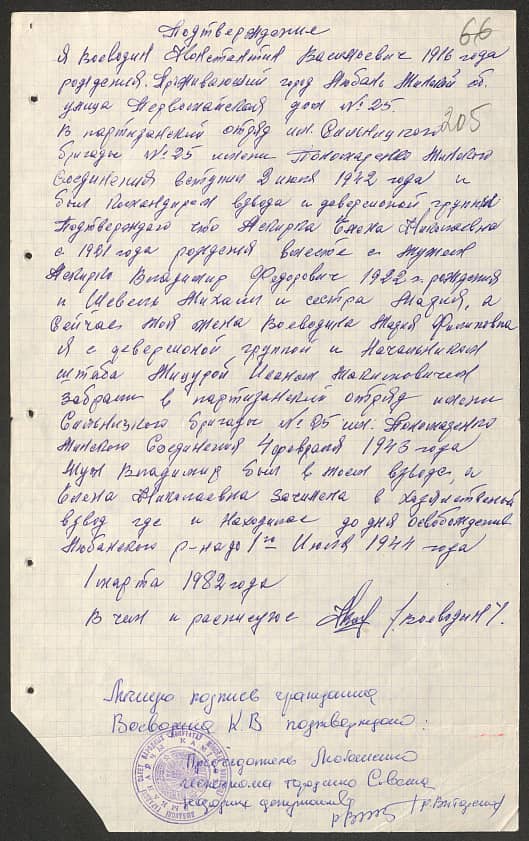 66
Подтверждение
Я Воеводин Константин Васильевич 1916 года
рождения. Проживающий город Любань Минской об.
улица Первомайская дом № 25.
205
В партизанский отряд им. Сильницкого
бригады № 25 имени Пономаренко Минского
Соединения вступил 2 июня 1942 года и
был командиром взвода и диверсионой группы
Подтверждаю что Аскирка Елена Николаевна
с 1921 года рождения вместе с мужем
Владимир Федорович 1922 г. рождения
и Шевель Михаил и сестра Мадия, а
сейчас моя жена Воеводина Мадия Филиповна
я с диверсионой группой и Начальником
штаба Мицурой Иваном
забрали в партизанский отряд имени
Сильницкого бригады № 25 им. Пономаренко
Минского Соединения 4 февраля 1943 года
Муж Владимир был в моем взводе, а
Елена Николаевна зачислена в
взвод где и находилас до дня освобождения
Любанского р-на до 1го Июля 1944 года
1 марта 1982 года
В чем и расписуюс /Воеводин/.
Личную подпись гражданина
Воеводина К.В подтверждаю:
Председатель Любанского
городского Совета
народных депутатов